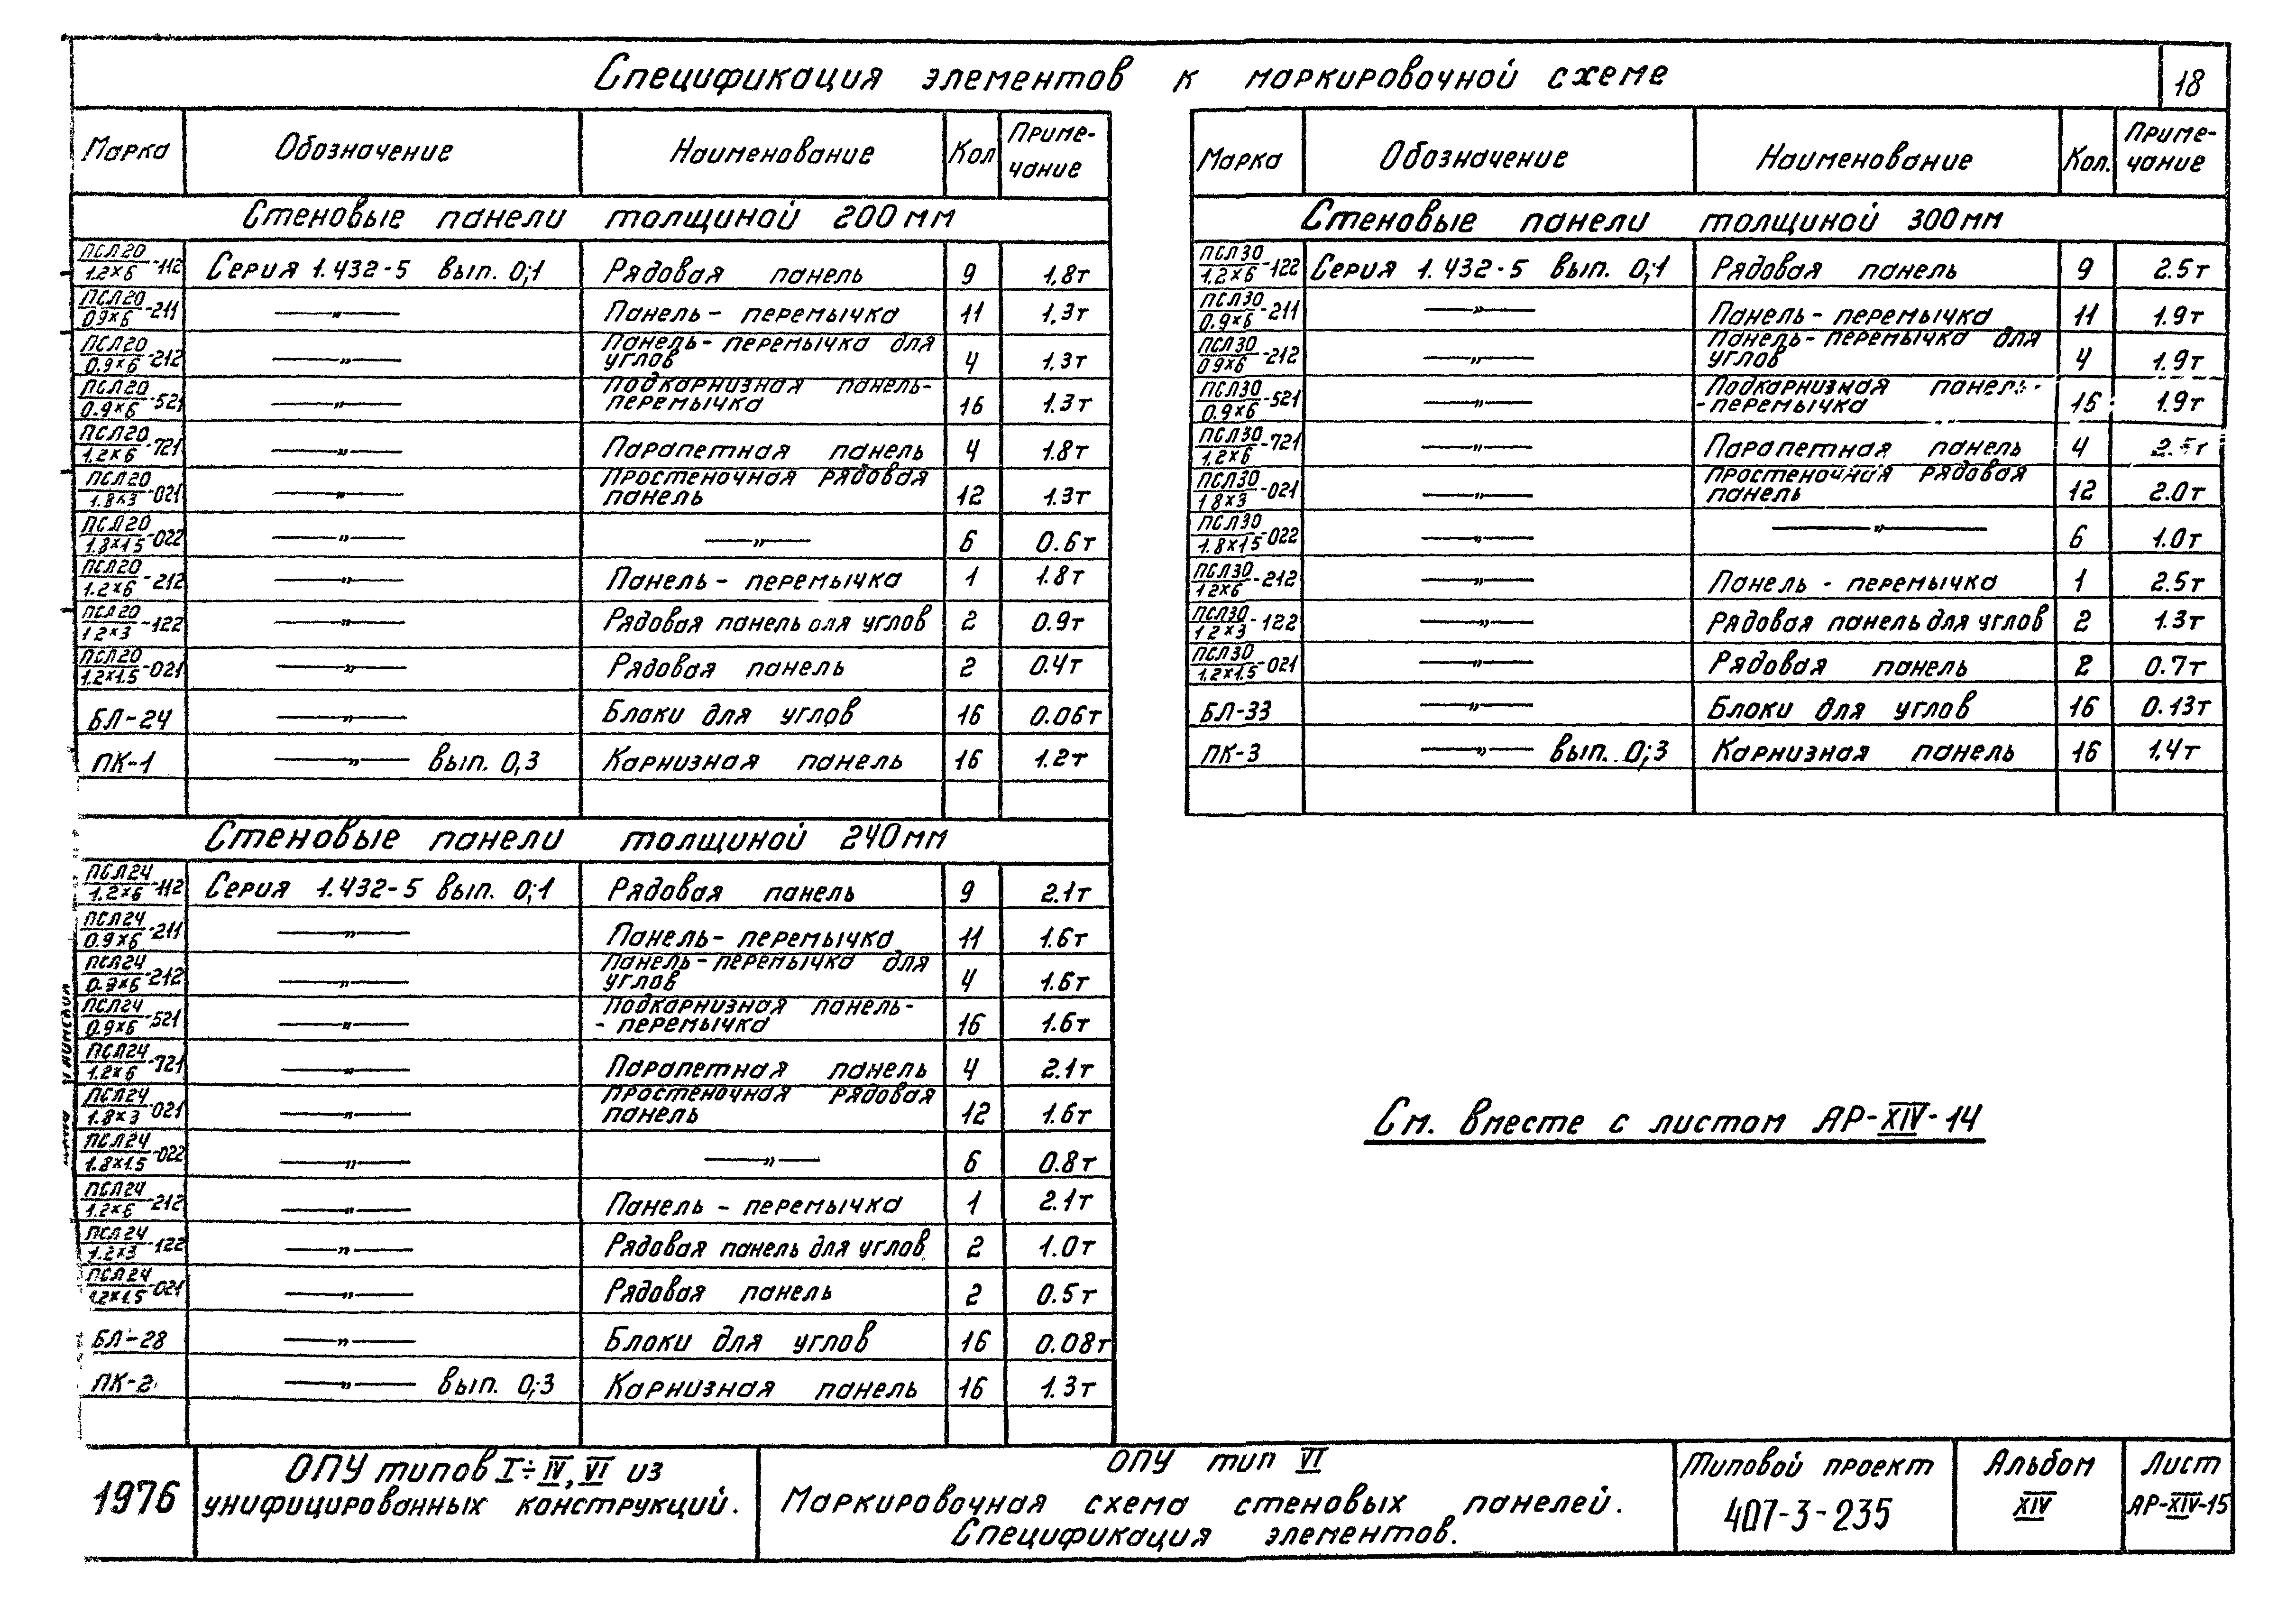 Спецификация элементов к маркировочной схеме
18
Марка Обозначение Наименование Кол Приме-чание
Стеновые панели толщиной 200мм
ПСЛ20/1.2×6-112 Серия 1.432-5 вып. 0;1 Рядовая панель 9 1,8т
ПСЛ20/09×6-211 —„— Панель- перемычка 11 1,3т
ПСЛ20/0.9×6-212 —„— Панель-перемычка для углов 4 1,3т
ПСЛ20/0.9×6-521 —„— Подкарнизная панель-перемычка 16 1.3т
ПСЛ20/1.2×6-721 —„— Парапетная панель 4 1.8т
ПСЛ20/1.8×3-021 —„— Простеночная рядовая панель 12 1.3т
ПСЛ20/1.8×15-022 —„— —„— 6 0.6т
ПСЛ20/1.2×6-212 —„— Панель- перемычка 1 1.8т
ПСЛ20/12×3-122 —„— Рядовая панель для углов 2 0.9т
ПСЛ20/1.2×1.5-021 —„— Рядовая панель 2 0.4т
БЛ-24 —„— Блоки для углов 16 0.06т
ПК-1 —„— вып. 0,3 Карнизная панель 16 1.2т
Стеновые панели толщиной 240мм
ПСЛ24/1.2×6-112 Серия 1.432-5 вып. 0;1 Рядовая панель 9 2.1т
ПСЛ24/0.9×6-211 —„— Панель- перемычка 11 1.6т
ПСЛ24/0.9×6-212 —„— Панель-перемычка для углов 4 1.6т
ПСЛ24/0.9×6-521 —„— Подкарнизная панель- - перемычка 16 1.6т
ПСЛ24/1.2×6-721 —„— Парапетная панель 4 2.1т
ПСЛ24/1.8×3-021 —„— Простеночная рядовая панель 12 1.6т
ПСЛ24/1.8×1.5-022 —„— —„— 6 0.8т
ПСЛ24/1.2×6-212 —„— Панель - перемычка 1 2.1т
ПСЛ24/1.2×3-122 —„— Рядовая панель для углов 2 1.0т
ПСЛ24/1.2×1.5-021 —„— Рядовая панель 2 0.5т
БЛ-28 —„— Блоки для углов 16 0.08т
ПК-2 —„— вып. 0;3 Карнизная панель 16 1.3т
Марка Обозначение Наименование Кол. Приме-чание
Стеновые панели толщиной 300мм
ПСЛ30/1.2×6-122 Серия 1.432-5 вып. 0;1 Рядовая панель 9 2.5т
ПСЛ30/0.9×6-211 —„— Панель- перемычка 11 1.9т
ПСЛ30/09×6-212 —„— Панель-перемычка для углов 4 1.9т
ПСЛ30/0.9×6-521 —„— Подкарнизная панель- -перемычка 16 1.9т
ПСЛ30/1.2×6-721 —„— Парапетная панель 4 2.5т
ПСЛ30/1 8×3-021 —„— Простеночная рядовая панель 12 2.0т
ПСЛ30/1.8×15-022 —„— —„— 6 1.0т
ПСЛ30/12×6-212 —„— Панель - перемычка 1 2.5т
ПСЛ30/12×3-122 —„— Рядовая панель для углов 2 1.3т
ПСЛ30/1.2×1.5-021 —„— Рядовая панель 2 0.7т
БЛ-33 —„— Блоки для углов 16 0.13т
ПК-3 —„— вып. 0;3 Карнизная панель 16 1,4т
См. вместе с листом АР-XIV-14
1976
ОПУ типов I÷IV, VI из
унифицированных конструкций.
ОПУ тип VI
Маркировочная схема стеновых панелей.
Спецификация элементов.
Типовой проект
407-3-235
Альбом
XIV
Лист
АР-XIV-15